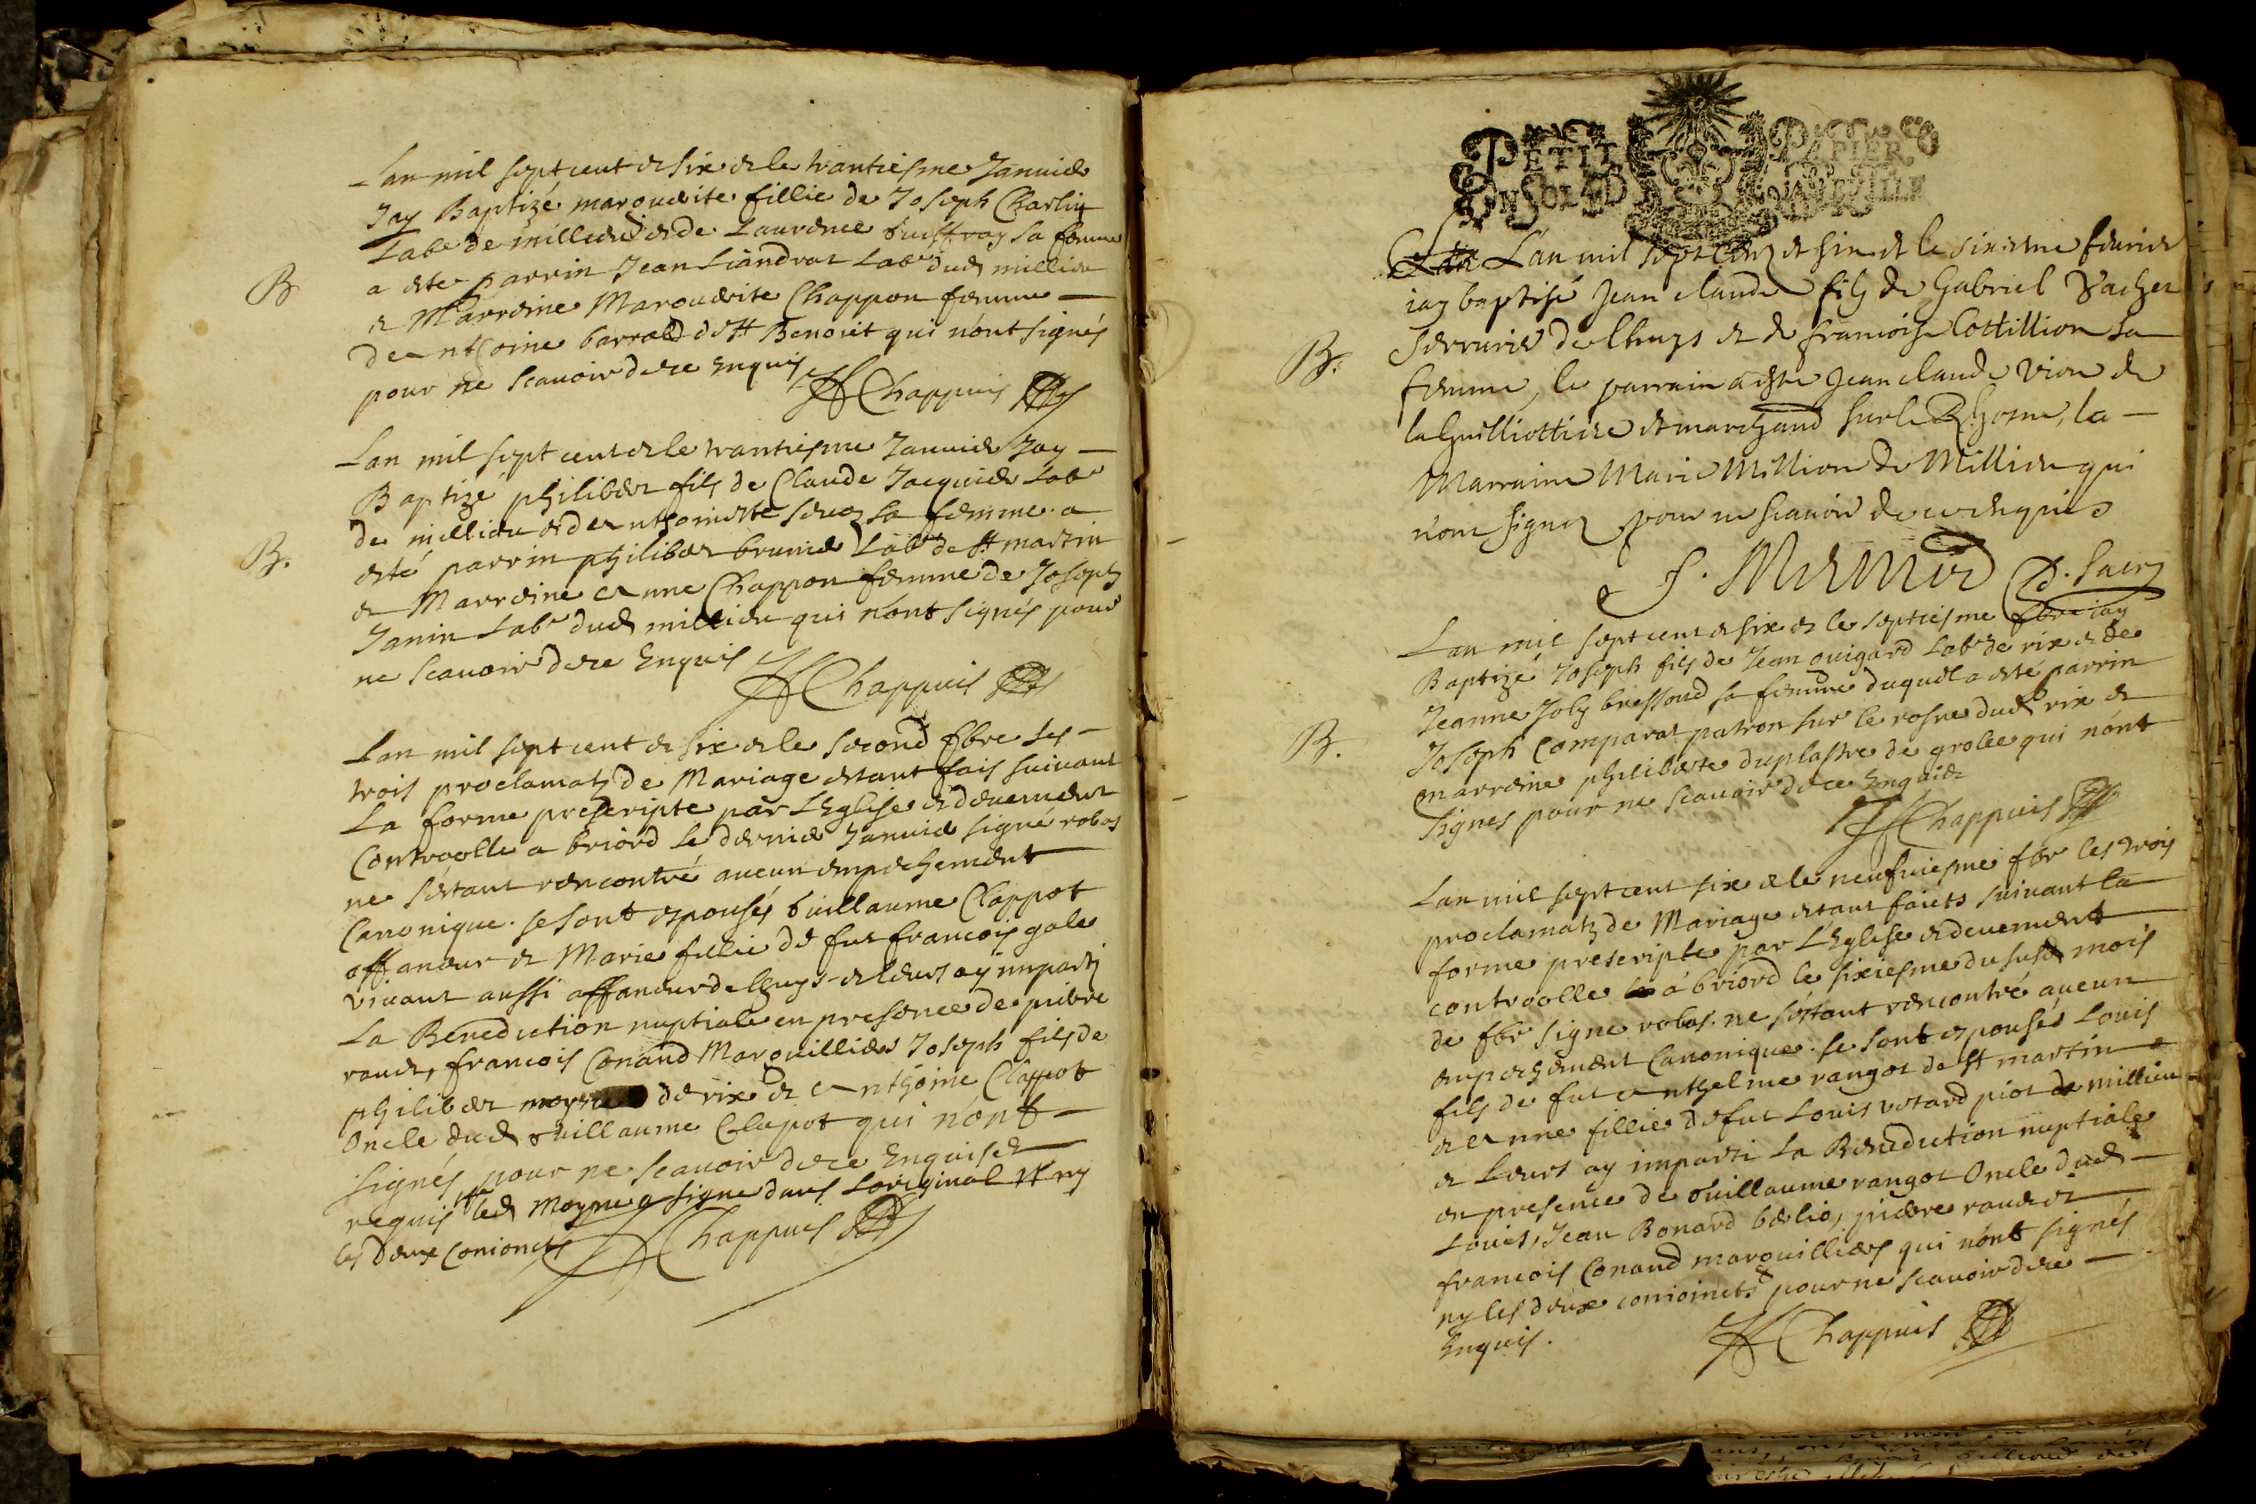 Lan mil sept cent & six & le trantiesme Januier
Jay Baptizé marguerite fillie de Joseph Charlin
Labr de millieu & de Laurence sa femme
a este parrin Jean Liandrat Labr dud millieu
B
& Marreine Marguerite Chappon femme
de Anthoine barral de St Benoist qui n'ont signés
pour ne scauoir de ce Enquis
Chappuis
Lan mil sept cent & le trantiesme Januier Jay
Baptizé philiber fils de Claude Jacquier Labr
de millieu & de Anthoinette sa femme a
B.
esté parrin philiber brunier Labr de St martin
& Marreine Anne Chappon femme de Joseph
Janin Labr dud millieu qui n'ont signés pour
ne scauoir de ce Enquis
Chappuis
Lan mil sept cent & six & le second fbre les
trois proclamatz de Mariage estant fais suiuant
La forme prescripte par L'Eglise & deuement
Controolle a briord le dernier Januier signé robas
ne s'estant rencontré aucun empechement
Canonique. se sont espousés Guillaume Clappot
affaneur & Marie fillie de fut francois gale
viuant aussi affaneur de lhuys & leurs ay imparti
La Benediction nuptiale en presence de pierre
raude, francois Conand Marguilliers Joseph fils de
philiber moyne de rix & Anthoine Clappot
Oncle dud Guillaume Clapot qui n'ont
signés pour ne scauoir de ce Enquis &
requis led Moyne a signe dans Loriginal & ny
les deux Conioncts
Chappuis
PETIT PAPIER
UN SOL LA FEUILLE
L'an mil sept Cent et six et le sixiesme feurier
iay baptisé Jean claude fils de Gabriel Vacher
B.
serrurier de Lhuys et de francoise Cottillion sa
femme, le parrain a esté Jean claude Vion de
la Guilliottiere et marchand sur le Rhosne, la
Marraine Marie Million de Millieu qui
n'ont signez pour ne scauoir de ce enquis
Lan mil sept cent & six & le septiesme fbre iay
Baptizé Joseph fils de Jean guigard Labr de rix & de
Jeanne Joly bressoud sa femme duquel a esté parrin
B.
Joseph Comparat patron sur le rosne dud rix &
marreine philiberte duplastre de grolee qui n'ont
signes pour ne scauoir de ce Enquis
Chappuis
Lan mil sept cent six & le neufuiesme fbr les trois
proclamatz de Mariage estant faicts suiuant la
forme prescripte par L'Eglise & deuement
controolle à briord le sixiesme du susd mois
de fbr signe robas. ne s'estant rencontré aucun
empechement Canonique. se sont espousés Louis
fils de fut Anthelme rangot de St martin
& Anne fillie de fut Louis piot de millieu
& Leurs ay imparti La Benediction nuptiale
en presence de Guillaume rangot Oncle dud
Louis, Jean Bonard pierre raude &
francois Conand marguilliers qui n'ont signés
ny les deux conioincts pour ne scauoir de ce
Enquis.
Chappuis